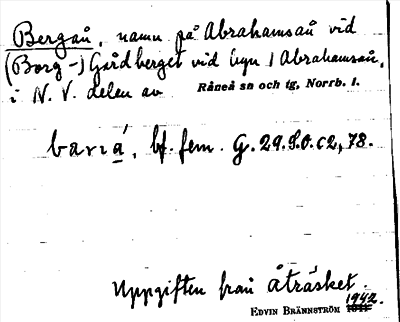 Bergån, namn på Abrahamsån vid
(Borg-) Gårdberget vid byn / Abrahamsån,
i N.V. delen av Råneå sn och tg, Norrb. l.
barıá, bf. fem. G. 29. S.O. c2, 78.
Uppgiften från Åträsket.
EDVIN BRÄNNSTRÖM 1942.